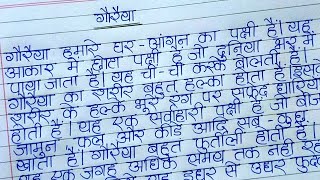 गौरैया
गौरैया हमारे घर-आंगन का पक्षी है। यह
आकार में छोटा पक्षी है जो दुनिया भर में
पाया जाता है। यह चीं-चीं करके बोलता है।
गौरैया का शरीर बहुत हल्का होता है। इसके
शरीर के हल्के भूरे रंग पर सफेद धारियां
होती हैं। यह एक सर्वाहारी पक्षी है जो बीज
जामुन, फल और कीड़े आदि सब-कुछ
खाता है। गौरैया बहुत फुर्तीली होती है।
यह एक जगह अधिक समय तक नहीं रह
यह इधर से उधर फुद